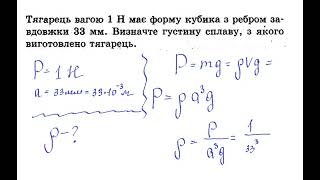 Тягарець вагою 1 Н має форму кубика з ребром за-
вдовжки 33 мм. Визначте густину сплаву, з якого
виготовлено тягарець.
P = 1 Н
a = 33мм = 33·10⁻³ м
ρ - ?
P = mg = ρVg =
P = ρ a³g
ρ = P/a³g = 1/33³